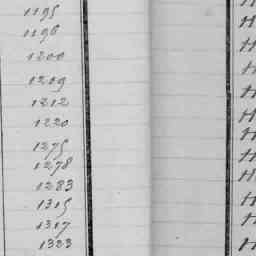 1195
1196
1200
1209
1212
1220
1275
1278
1283
1315
1317
1323